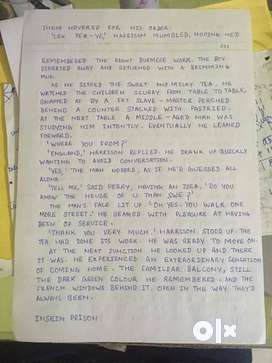 THEN HOVERED FOR HIS ORDER.
'LEK PER-YE,' HARRISON MUMBLED, HOPING HE'D
REMEMBERED THE RIGHT BURMESE WORK. THE BOY
DEPARTED AWAY AND RETURNED WITH A BRIMMING
MUG.
AS HE SIPPED THE SWEET MILKY TEA, HE
WATCHED THE CHILDREN SCURRY FROM TABLE TO TABLE,
BY A FAT SLAVE-MASTER PERCHED
BEHIND A COUNTER STACKED WITH PASTRIES.
AT THE NEXT TABLE A MIDDLE-AGED MAN WAS
STUDYING HIM INTENTLY. EVENTUALLY HE LEANED
FORWARD.
'WHERE YOU FROM?'
'ENGLAND,' HARRISON REPLIED. HE DRANK UP QUICKLY
WANTING TO AVOID CONVERSATION.
'YES,' THE MAN NODDED, AS IF HE'D GUESSED ALL
ALONG.
'TELL ME,' SAID PERRY, HAVING AN IDEA, 'DO YOU
KNOW THE HOUSE OF U THAN SWE?'
THE MAN'S FACE LIT UP. 'OH YES. YOU WALK ONE
MORE STREET.' HE BEAMED WITH PLEASURE AT HAVING
BEEN OF SERVICE.
'THANK YOU VERY MUCH.' HARRISON STOOD UP. THE
TEA HAD DONE ITS WORK. HE WAS READY TO MOVE ON.
AT THE NEXT JUNCTION HE LOOKED UP AND THERE
IT WAS. HE EXPERIENCED AN EXTRAORDINARY SENSATION
OF COMING HOME. THE FAMILIAR BALCONY, STILL
THE DARK GREEN COLOUR HE REMEMBERED. AND THE
FRENCH WINDOWS BEHIND IT, OPEN IN THE WAY THEY'D
ALWAYS BEEN.
INSEIN PRISON
OLX